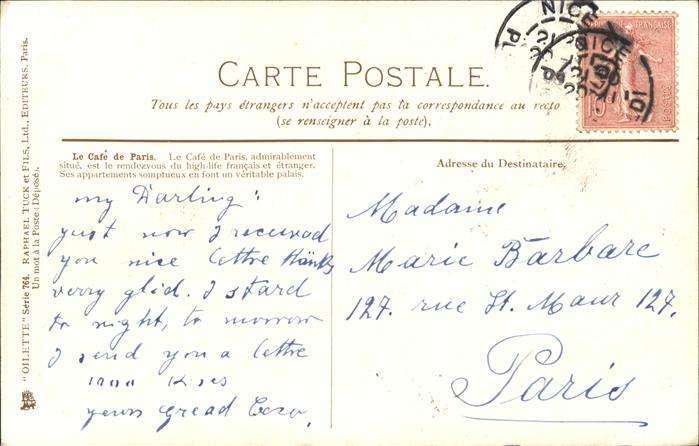 CARTE POSTALE.
Tous les pays étrangers n'acceptent pas la correspondance au recto
(se renseigner à la poste).
NICE
NICE
RÉPUBLIQUE FRANÇAISE
10
POSTES
"OILETTE" Série 764. RAPHAEL TUCK et FILS, Ltd., EDITEURS, Paris.
Un mot à la Poste (Déposé).
Le Café de Paris. Le Café de Paris, admirablement
situé, est le rendezvous du high-life français et étranger.
Ses appartements somptueux en font un véritable palais.
my Darling:
yust now I received
you nice lettre thanks
verry glid. I stard
to night, to morrow
I send you a lettre
1000 K ses
yours gread
Adresse du Destinataire.
Madame
Marie Barbare
127. rue St. Maur 127.
Paris